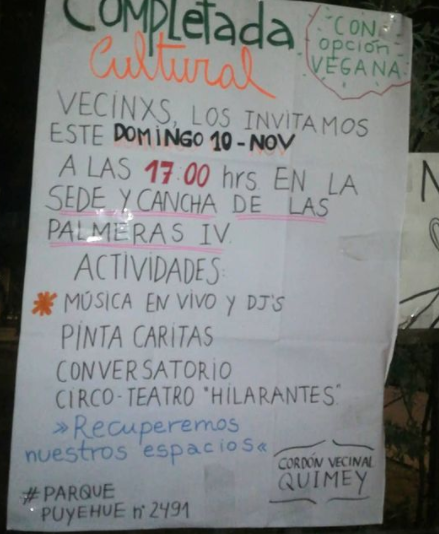 COMPLETADA
Cultural
CON
opción
VEGANA
VECINXS, LOS INVITAMOS
ESTE DOMINGO 10-NOV
A LAS 17:00 hrs. EN LA
SEDE Y CANCHA DE LAS
PALMERAS IV.
ACTIVIDADES:
* MÚSICA EN VIVO Y DJ'S
PINTA CARITAS
CONVERSATORIO
CIRCO-TEATRO "HILARANTES".
»Recuperemos
nuestros espacios«
CORDÓN VECINAL
QUIMEY
#PARQUE
PUYEHUE n° 2491